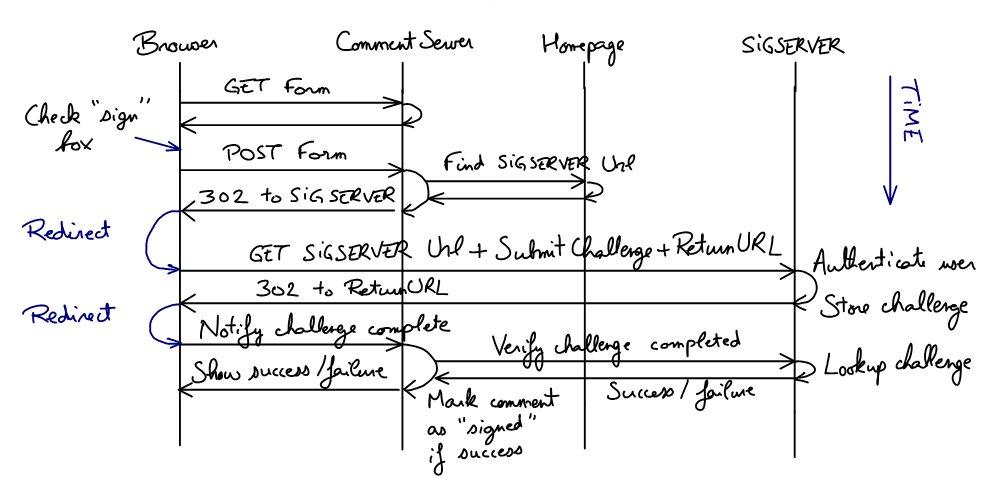 Browser CommentServer Homepage SiGSERVER
GET Form
Check "sign"
box
TiME
POST Form
Find SiGSERVER Url
302 to SiGSERVER
Redirect
GET SiGSERVER Url + Submit Challenge + ReturnURL
Authenticate user
302 to ReturnURL
Store challenge
Redirect
Notify challenge complete
Verify challenge completed
Show success/failure
Lookup challenge
Success/failure
Mark comment
as "signed"
if success